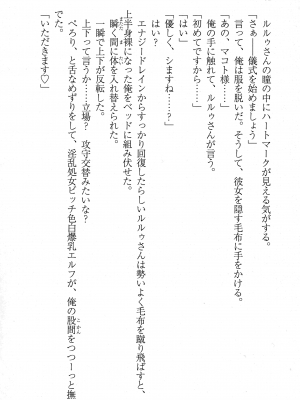 ルルゥさんの瞳の中にハートマークが見える気がする。
「さぁ――儀式を始めましょう」
言って、俺は服を脱いだ。そうして、彼女を隠す毛布に手をかける。
「あの、マコト様……」
俺の手に触れて、ルルゥさんが言う。
「初めてですから……」
「はい」
「優しく、シますね……？」
「はい？」
エナジードレインからすっかり回復したらしいルルゥさんは勢いよく毛布を蹴り飛ばすと、
上半身裸になった俺をベッドに組み伏せた。
瞬く間に体を入れ替えられた。
一瞬で上下が反転した。
上下って言うか……立場？　攻守交替みたいな？
ぺろり、と舌なめずりをして、淫乱処女ビッチ色白爆乳エルフが、俺の股間をつつーっと撫
でた。
「いただきます♡」